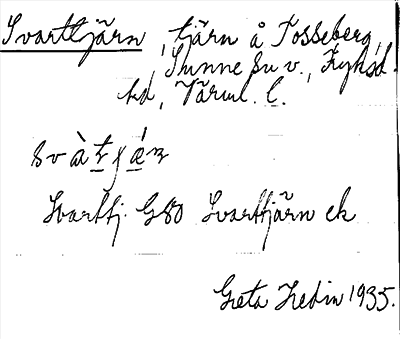 Svarttjärn, tjärn å Tosseberg,
Sunne su v., Fryksd.
hd, Värml. l.
svàtjæ̀n
Svarttj. G80 Svarttjärn ek
Greta Hedin 1935.